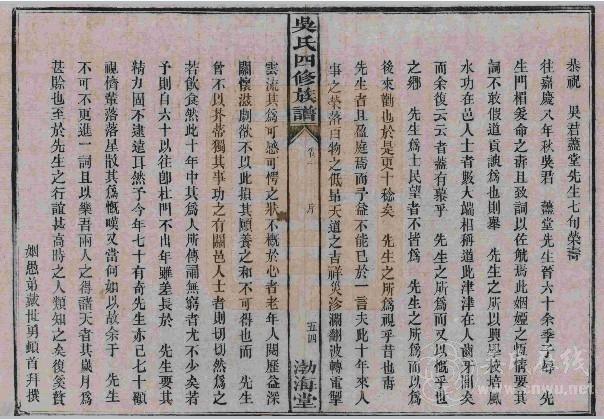 恭祝 吳君藎堂先生七旬榮壽
往嘉慶八年秋吳君 藎堂先生晉六十余季子學 先
生門楣爰命之壽且致詞以佐觥焉此姻婭之恆情要其
詞不敢假道貢諛爲也則舉 先生之所以興學校培風
水功在邑人士者數大端相稱道此津津在人齒牙間矣
而余復云云者蓋有慕乎 先生之所爲而又以慨乎世
之鄉 先生爲士民望者不皆爲 先生之所爲而以爲
後來勸也於是更十稔矣 先生之所爲視乎昔也壽
先生者且盈庭焉而予益不能已於一言夫此十年來人
事之榮落百物之低昂天道之吉祥災沴瀾翻波轉電掣
吳氏四修族譜
卷
五四
渤海堂
雲流其爲可感可愕之狀不概於心者老年人閱歷益深
關懷滋劇欲不以此損其頤養之和不可得也而 先生
曾不以芥蒂獨其事功之有關邑人士者則切切然爲之
若飲食然此十年中其爲人所傳誦無窮者尤不少矣若
予則自六十以往卽杜門不出年雖差長於 先生要其
精力固不逮遠耳然于今年七十有奇先生亦已七十顧
視儕輩落落星散其爲慨嘆又當何如以故余于 先生
不可不更進一詞且以樂吾兩人之得諸天者其歲月爲
甚賒也至於先生之行誼甚高時之人類知之矣復奚贅
姻愚弟戴世勇頓首拜撰
www.cnwu.net